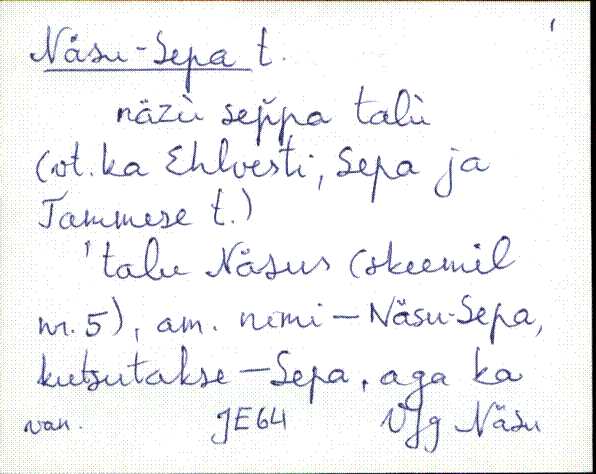 Näsu-Sepa t.
näzù sep̆pa talù
(vt. ka Ehlvesti, Sepa ja
Tammese t.)
'talu Näsus (skeemil
nr. 5), am. nimi – Näsu-Sepa,
kutsutakse – Sepa, aga ka
van. JE64 Vgg Näsu